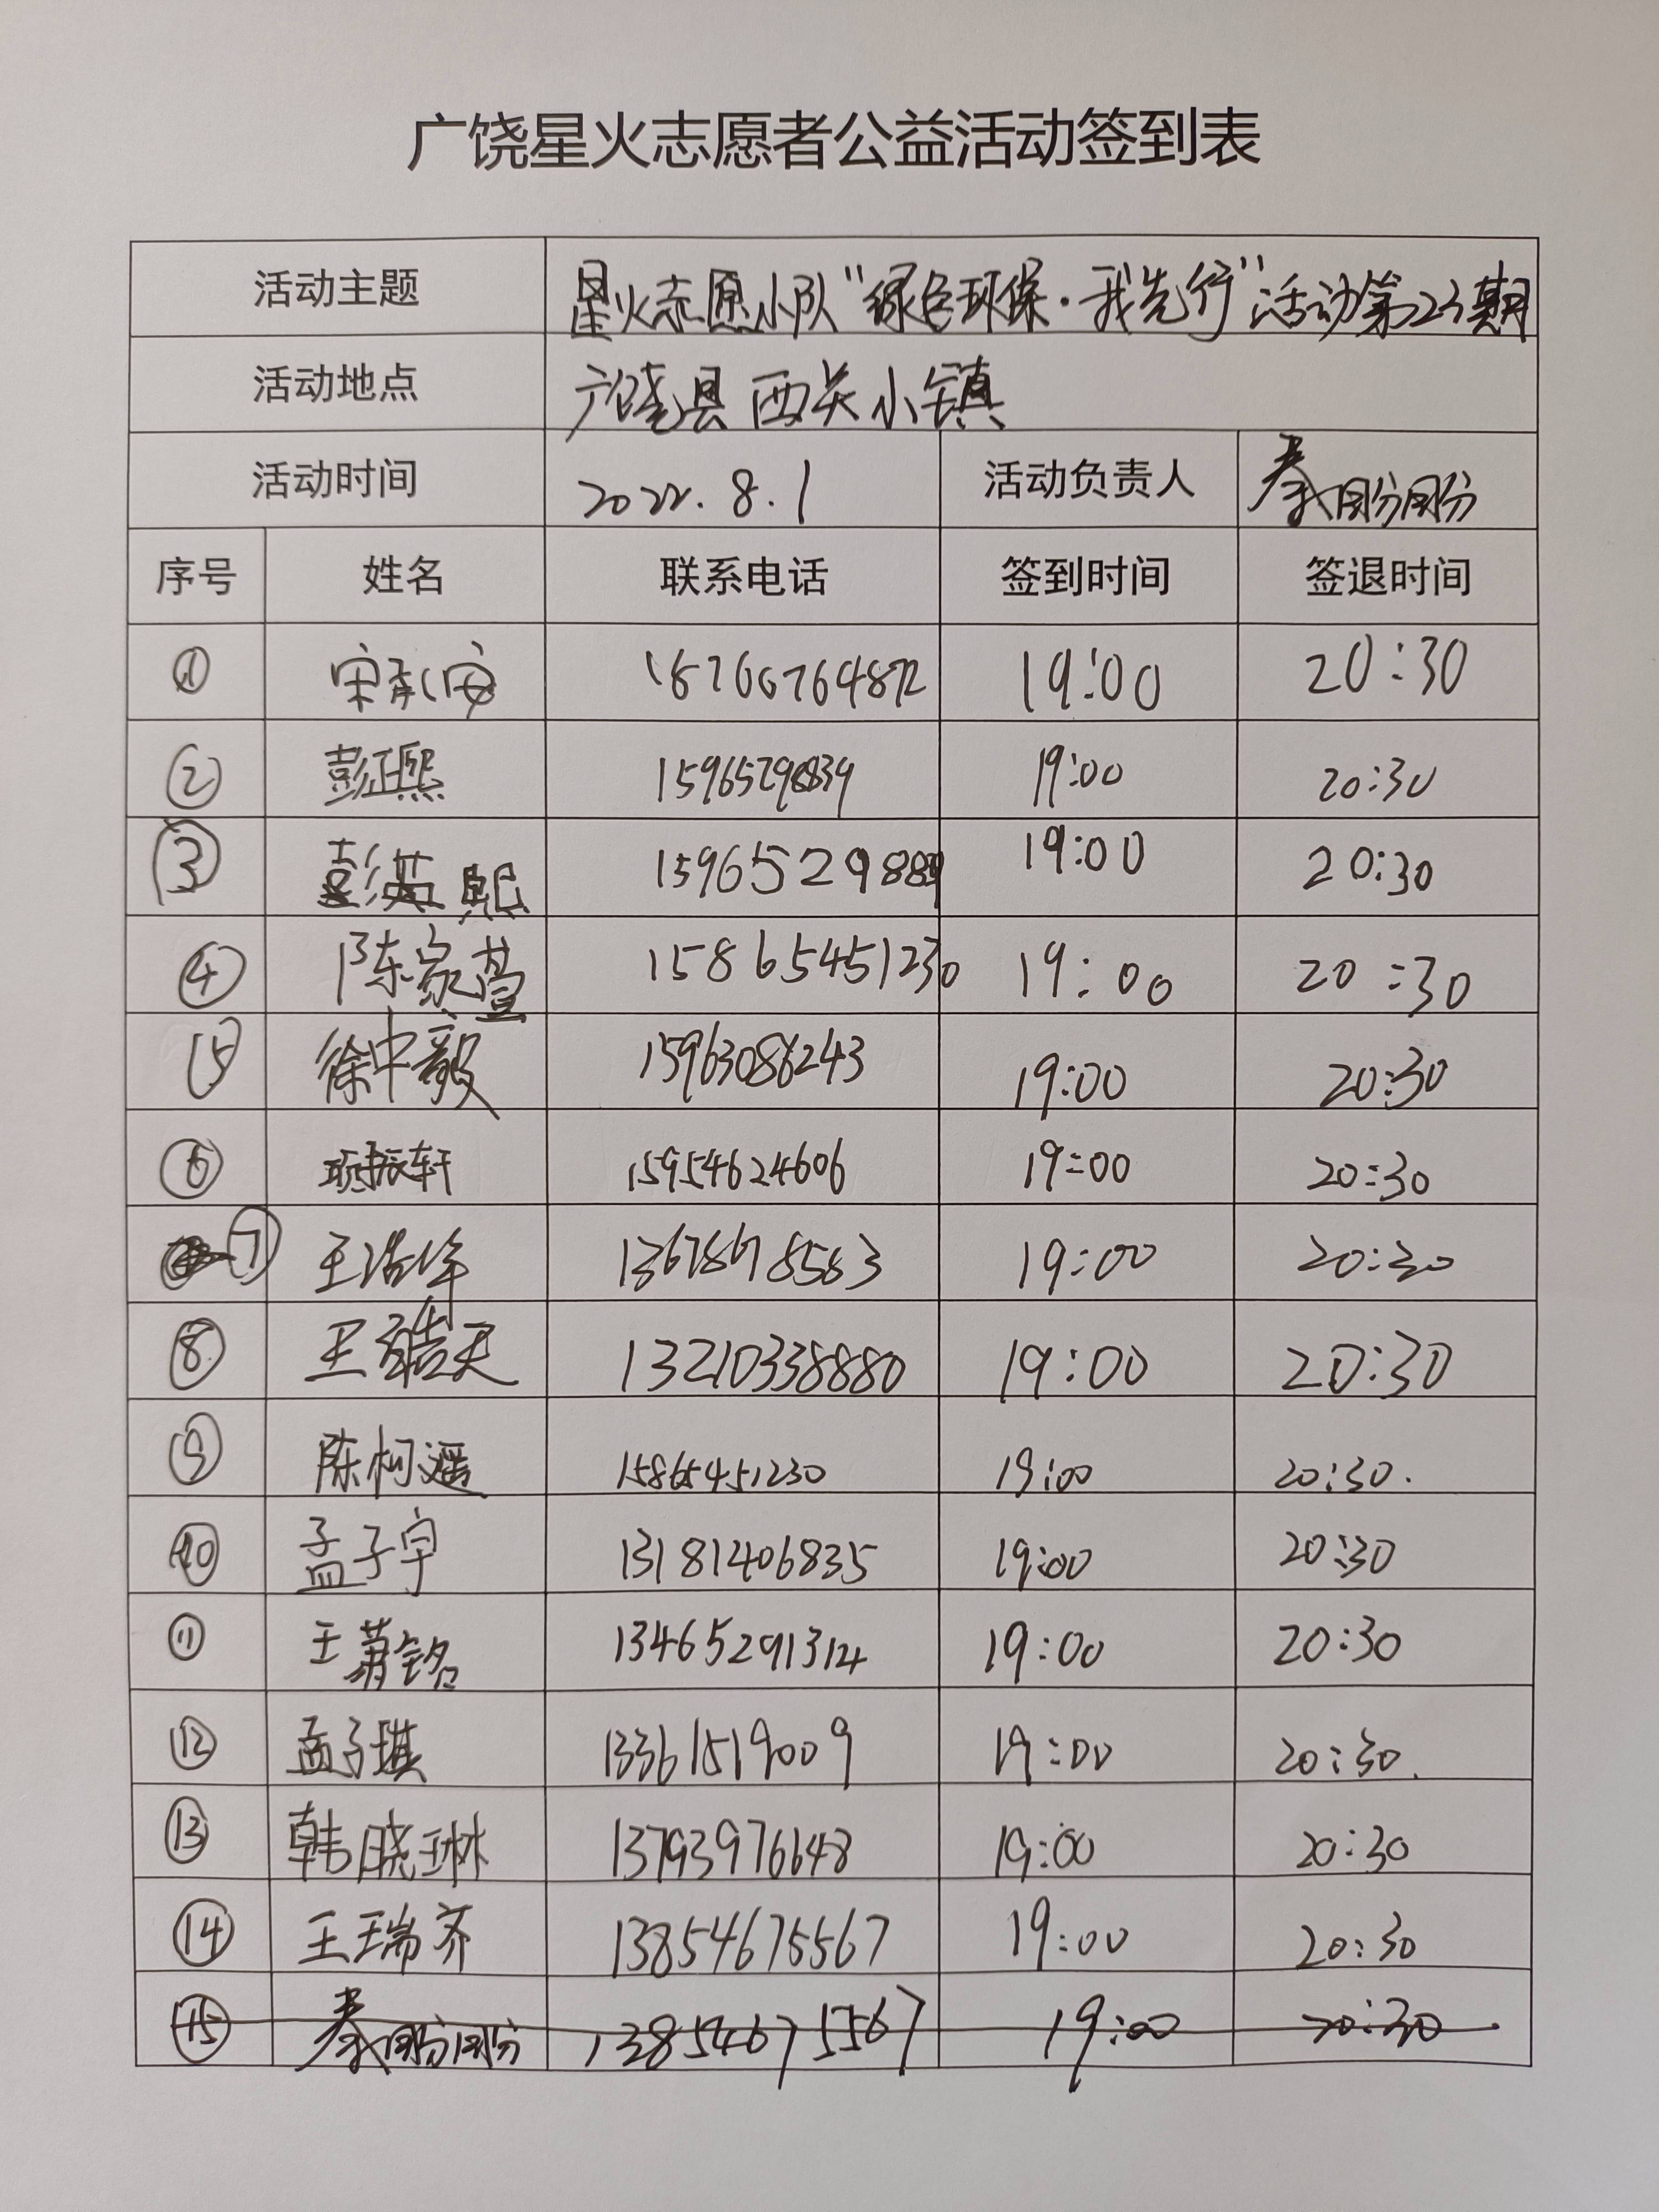 广饶星火志愿者公益活动签到表
活动主题 星火志愿小队“绿色环保·我先行”活动第23期
活动地点 广饶县西关小镇
活动时间 2022.8.1 活动负责人
序号 姓名 联系电话 签到时间 签退时间
① 宋承安 19:00 20:30
② 彭正熙 19:00 20:30
③ 19:00 20:30
④ 陈家萱 15865451230 19:00 20:30
⑤ 徐中毅 15963086243 19:00 20:30
⑥ 项振轩 15954624606 19:00 20:30
⑦ 19:00 20:30
⑧ 13210338880 19:00 20:30
⑨ 陈柯遥 15865451230 19:00 20:30.
⑩ 孟子宇 13181406835 19:00 20:30
⑪ 王萧铭 13465291314 19:00 20:30
⑫ 孟子琪 13361519009 19:00 20:30.
⑬ 韩晓琳 13793976648 19:00 20:30
⑭ 王瑞齐 13854675567 19:00 20:30
⑮ 13854675567 19:00 20:30